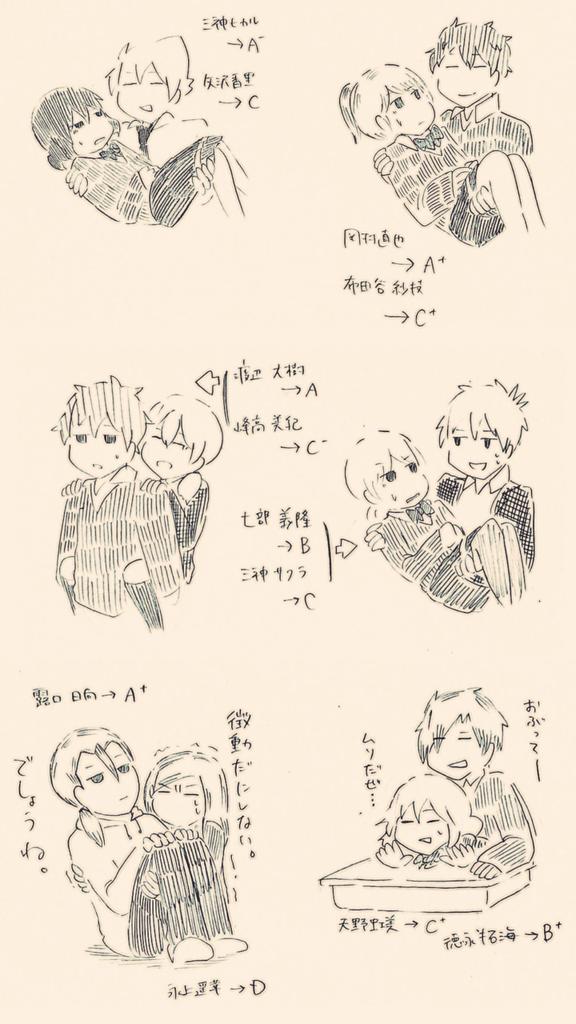 三神ヒカル
→A⁻
矢沢香里
→C
岡村直也
→A⁺
布田谷 紗枝
→C⁺
渡辺 大樹
→A
峰高 美紀
→C⁻
七部 義隆
→B
三神サクラ
→C
露口 日向→A⁺
微動だにしない。ー!
でしょうね。
→D
おぶってー
ムリだぜ…。
天野 →C⁺
徳永拓海→B⁺